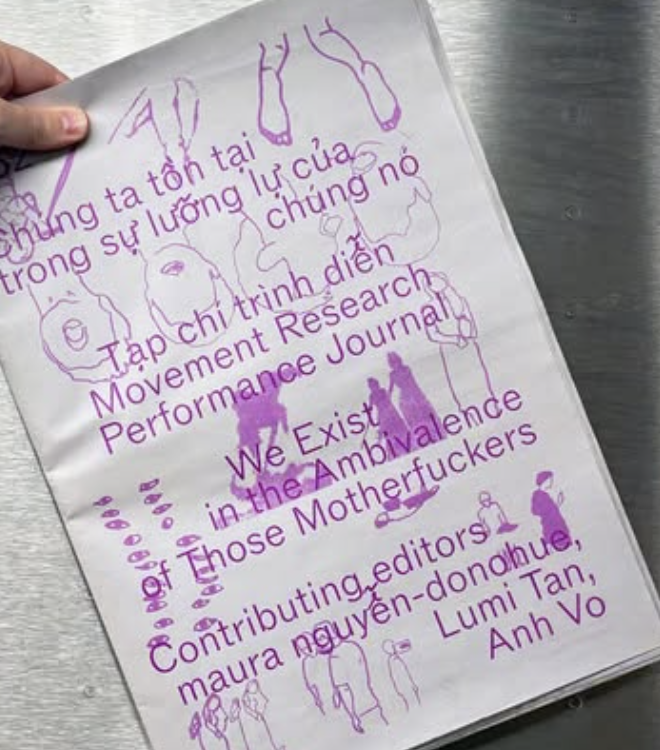 52
chúng ta tồn tại
trong sự lưỡng lự của
chúng nó
Tạp chí trình diễn
Movement Research
Performance Journal
We Exist
in the Ambivalence
of Those Motherfuckers
Contributing editors
maura nguyễn-donohue,
Lumi Tan,
Anh Vo